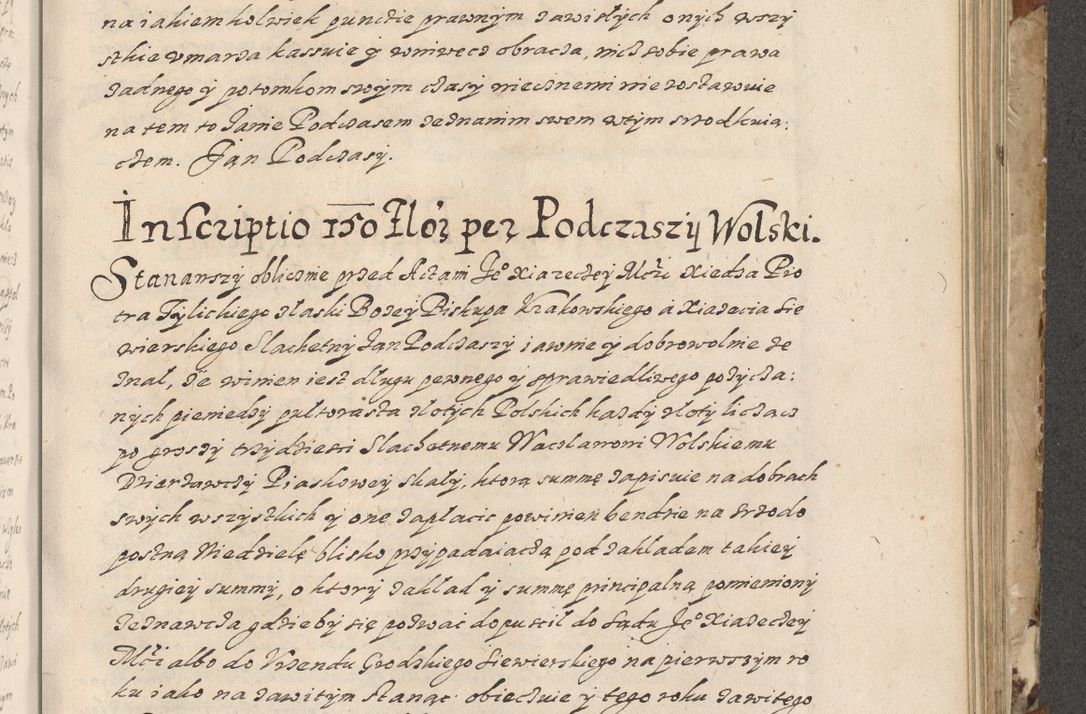 na iakiemkolwiek punctie prawnÿm zawisłÿch onÿch wszÿ
stkie vmarza kassuie ÿ wniwecz obracza, nicz sobie prawa
zadnego ÿ potomkom swoÿm czasÿ wiecznemi nie zostawuie
na tem to Janie Podczasem zeznanim swem wtÿm srzodkuia:
czem. Jan Podczasÿ.
Inscriptio 150 Złoz per Podczaszÿ Wolski.
Stanawszÿ oblicznie przed Actami Je° Xiazeczeÿ Mczi Xiedza Pio
tra Tÿlickiego zlaski Bozeÿ Biskupa Krakowskiego a Xiazecia Sie
wierskiego Slachetnÿ Jan Podczaszÿ iawnie ÿ dobrowolnie ze
znał, ze winien iest długu pewnego ÿ sprawiedliwego pozÿcza:
nÿch pieniedzÿ pułtorasta złotÿch Polskich kazdÿ złotÿ licząc
po groszÿ trzÿdziesci Slachetnemu Wacławowi Wolskiemu
Dzierzawczÿ Piaskoweÿ Skałÿ, ktorą summę zapisuie na dobrach
swÿch wszÿstkich ÿ onę zapłacic powinien bendzie na srzodo
postną Niedzielę blisko przÿpadaiaczą pod zakładem takieÿ
drugieÿ summÿ, o ktorÿ zakład ÿ summę principalną pomienionÿ
zeznawcza gdzie bÿ się pozwac dopuscił do Sądu Je° Xiazeczeÿ
Mczi albo do Vrzendu Grodzkiego Siewierskiego na pierwszÿm ro
ku iako na zawitÿm stanąc obieczuie ÿ tego roku zawitego